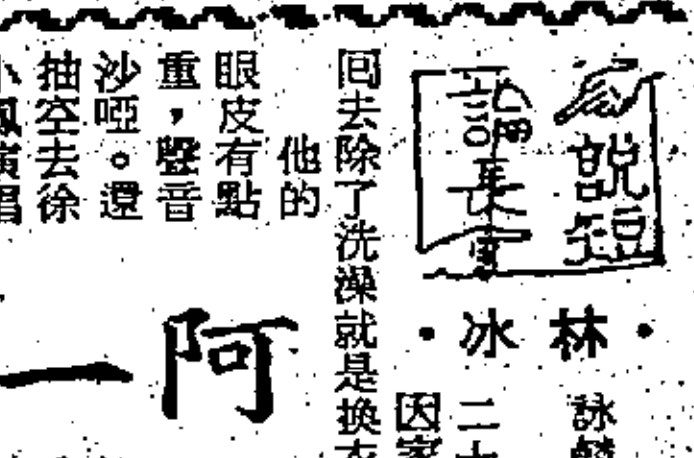 說短
長
·林冰·
詠
二十
因家
回去除了洗澡就是換衣
他的
眼皮有點
重，聲音
沙啞。還
抽空去徐
小鳳演唱
阿一